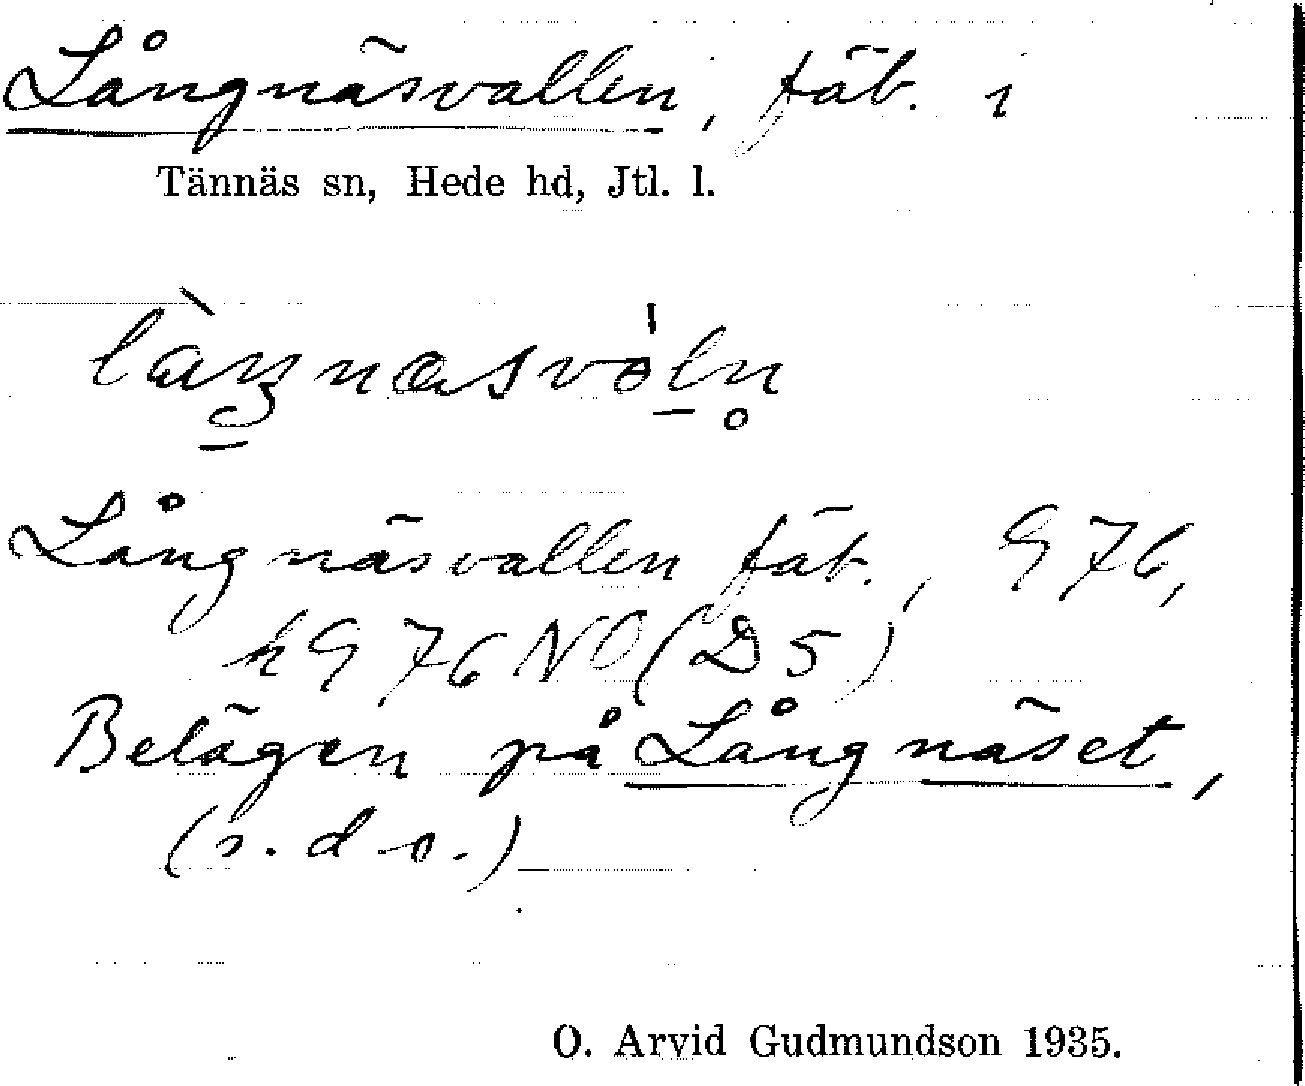 Långnäsvallen, fäb. i
Tännäs sn, Hede hd, Jtl. l.
Långnäsvallen fäb., G 76,
h G 76 NO (D 5)
Belägen på Långnäset,
(s. d. o.)
O. Arvid Gudmundson 1935.